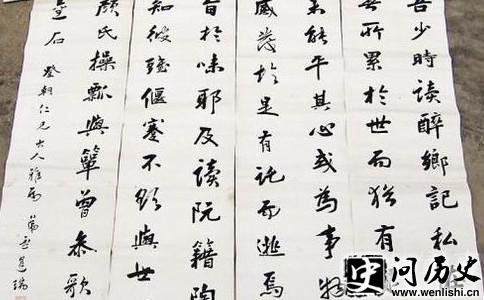 吾少時讀醉鄉記私
無所累於世而猶有
未能平其心或為事物
感發於是有託而逃焉
旨於味耶及讀阮籍陶
知彼雖偃蹇不欲與世
顏氏操瓢與簞曾參歌
金石
登朝仁兄大人雅屬 弟
史问历史
www.wenlishi.cn